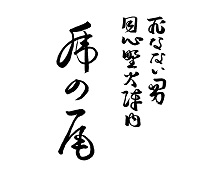 死なない男
同心野火陣内
虎の尾